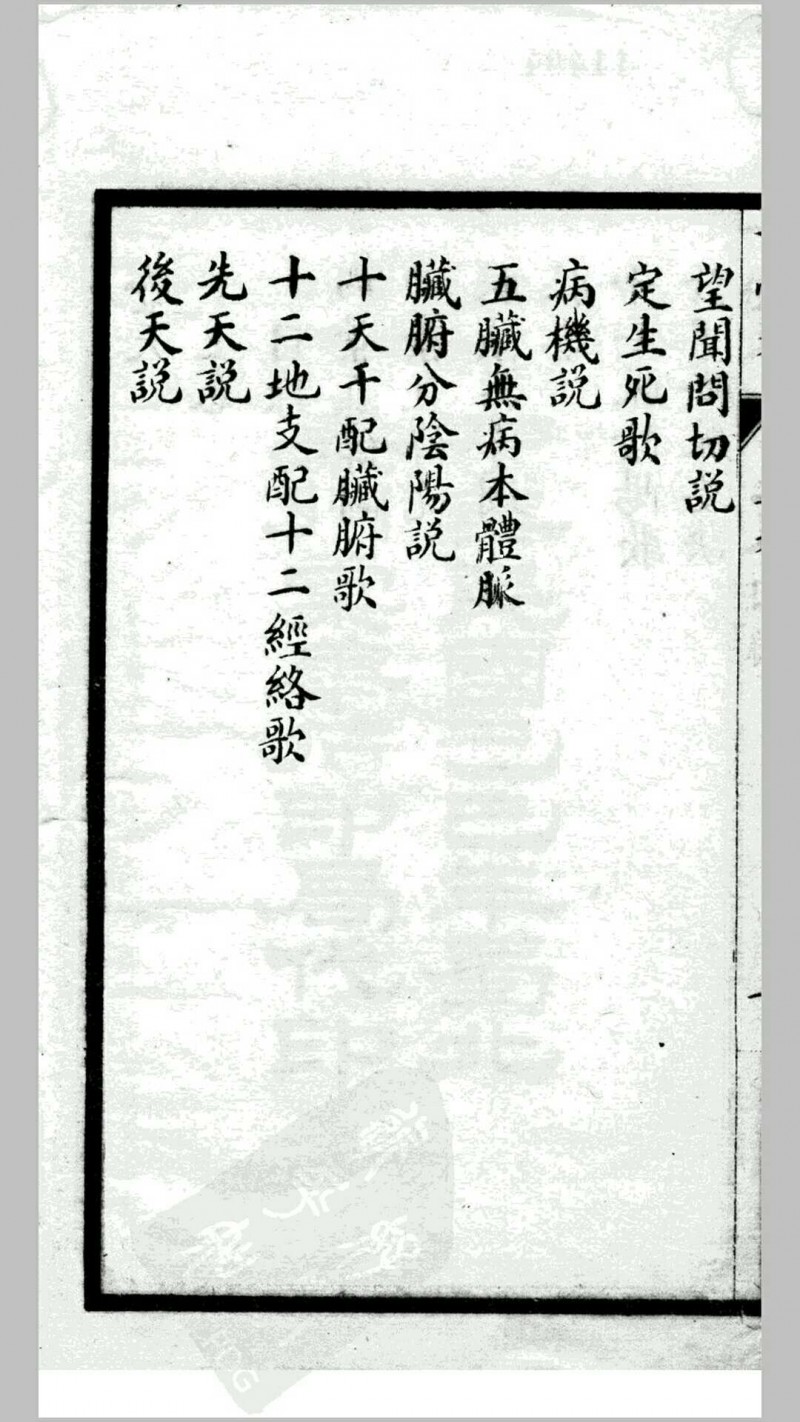 望聞問切説
定生死歌
病機説
五臟無病本體脈
臟腑分陰陽説
十天干配臟腑歌
十二地支配十二經絡歌
先天説
後天説